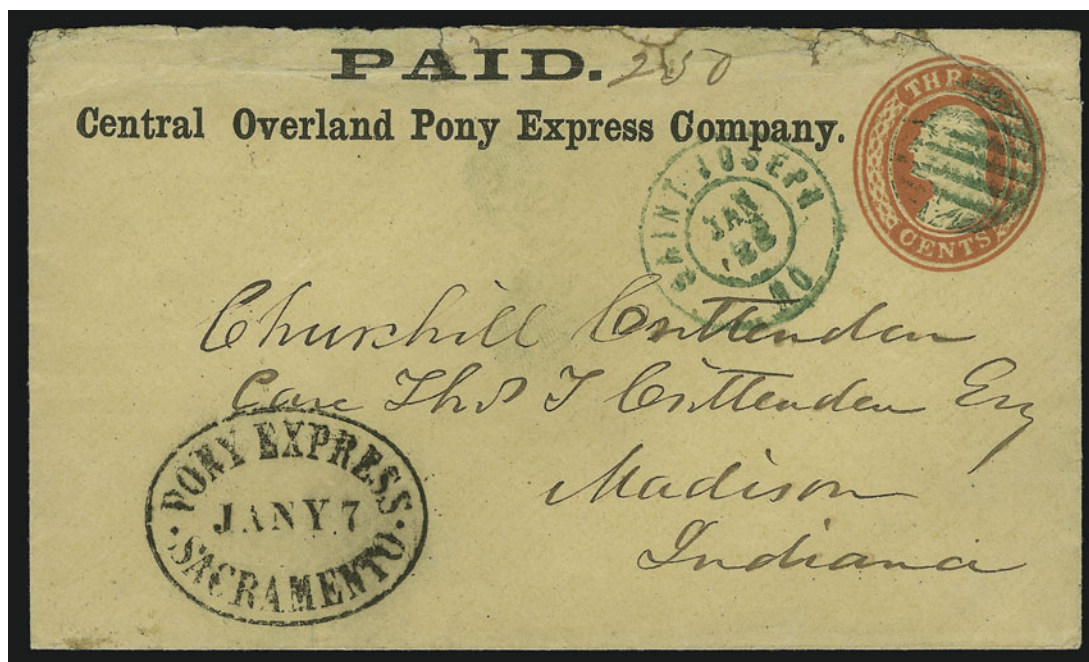 PAID. 250
Central Overland Pony Express Company.
THREE CENTS
SAINT JOSEPH MO
JAN
22
Churchill Crittenden
Care Thos T Crittenden Esq
Madison
Indiana
PONY EXPRESS
JANY. 7
SACRAMENTO